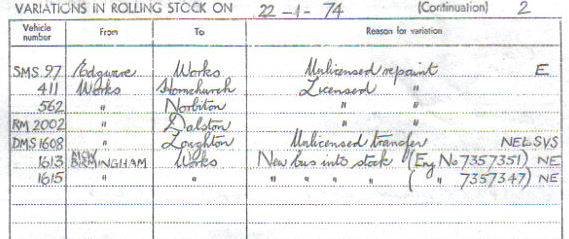 VARIATIONS IN ROLLING STOCK ON 22-1-74 (Continuation) 2
Vehicle number From To Reason for variation
SMS 97 Edgware Works Unlicensed repaint E
411 Works Hornchurch Licensed "
562 " Norbiton " "
RM 2002 " Dalston " "
DMS 1608 " Loughton Unlicensed transfer NELSVS
1613 MCW BIRMINGHAM Works New bus into stock (Eng No 7357351) NE
1615 " " " " " " ( " 7357347) NE